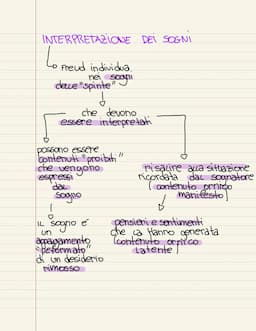 INTERPRETAZIONE DEI SOGNI
Freud individua
nei sogni
delle "spinte"
che devono
essere interpretati
possono essere
contenuti "proibiti"
che vengono
espressi
dal
sogno
risalire alla situazione
ricordata dal sognatore
(contenuto onirico
manifesto)
IL sogno è
un
appagamento
"deformato"
di un desiderio
rimosso
pensieri e sentimenti
che la hanno generata
(contenuto onirico
latente)